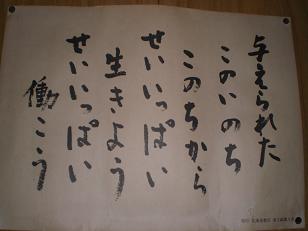 与えられた
このいのち
このちから
せいいっぱい
生きよう
せいいっぱい
働こう